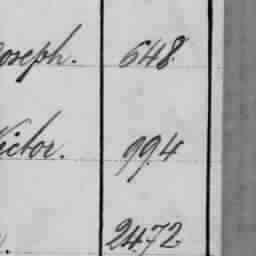 Joseph. 648.
Victor. 994
2472.